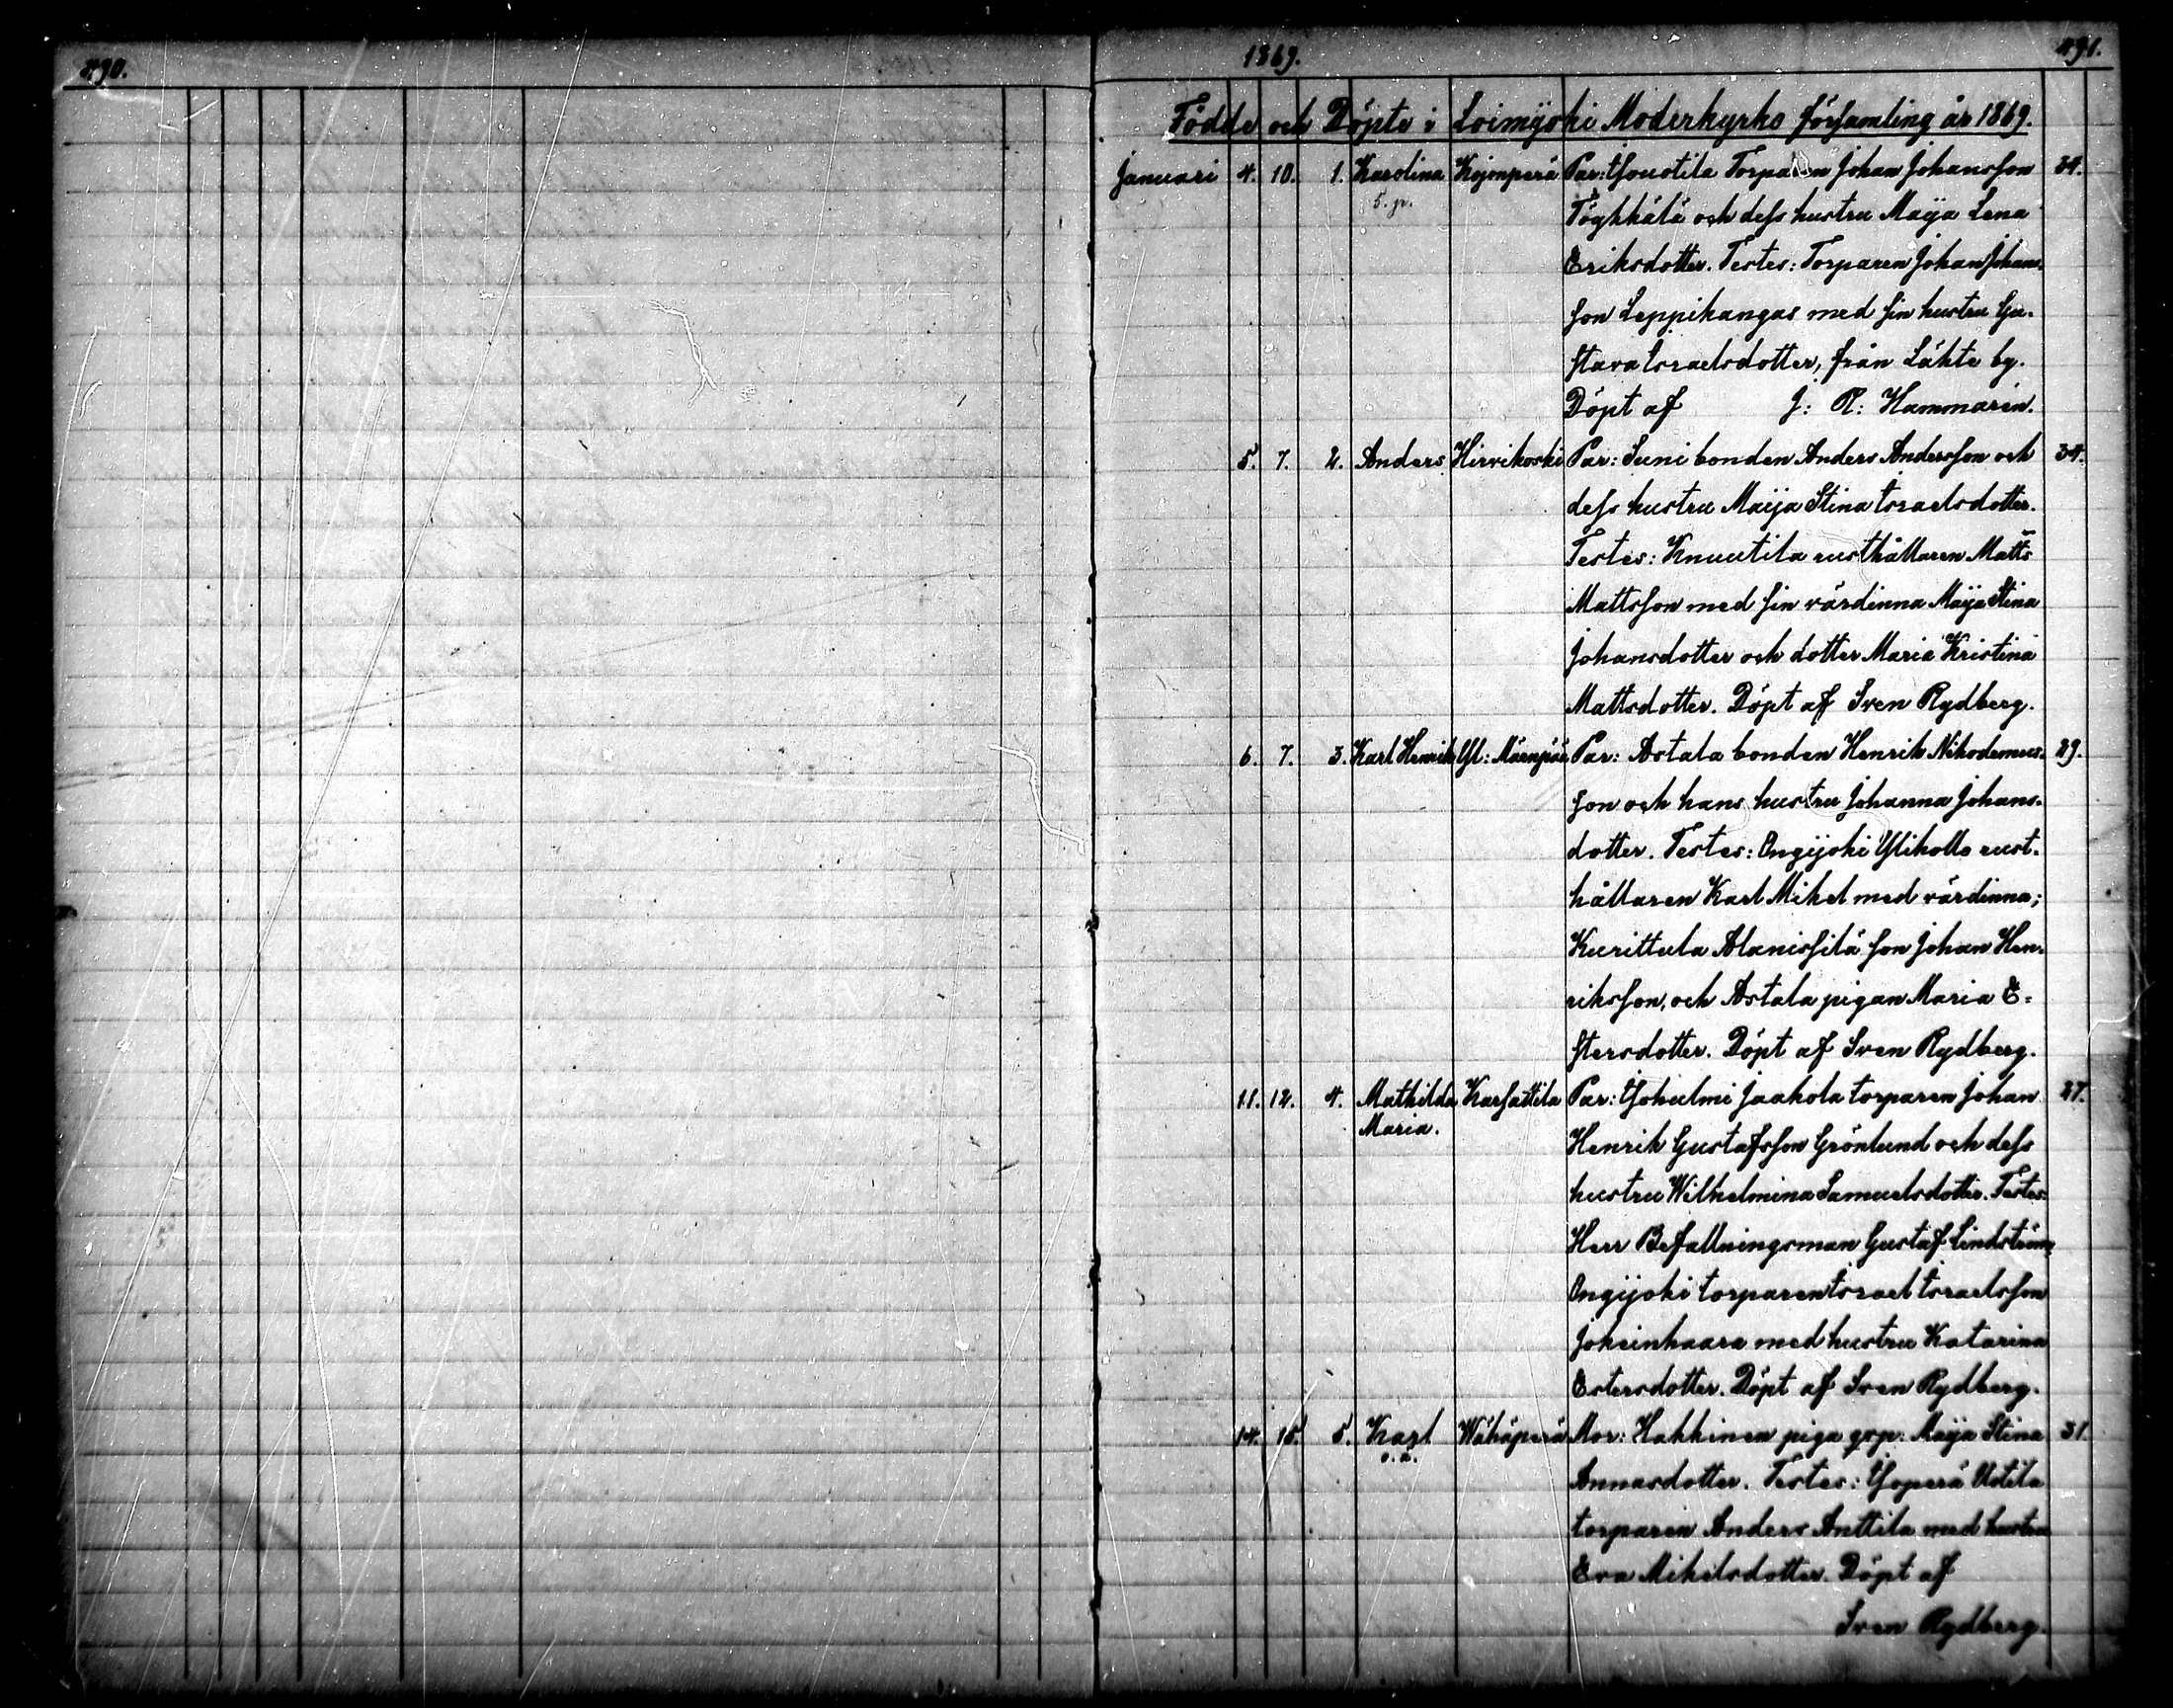 490.
1869.
491.
Födde och Döpte i Loimijoki Moderkyrko församling år 1869.
Januari 4. 10. 1. Karolina Kojonperä Par: Isouotila Torparen Johan Johansson 34.
Töykkälä och dess hustru Maija Lena
Eriksdotter. Testes: Torparen Johan Johans-
son Leppikangas med sin hustru Gu-
stava Israelsdotter, från Läkte by.
Döpt af J: R: Hammarén.
5. 7. 2. Anders Hirvikoski Par: Suni bonden Anders Andersson och 34.
dess hustru Maija Stina Israelsdotter.
Testes: Knuutila rusthållaren Matts
Mattsson med sin värdinna Maija Stina
Johansdotter och dotter Maria Kristina
Mattsdotter. Döpt af Sven Rydberg.
6. 7. 3. Karl Henrik Yl: Mäenpää Par: Astala bonden Henrik Nikodemus- 29.
son och hans hustru Johanna Johans-
dotter. Testes: Ongijoki Ylikollo rust-
hållaren Karl Mikel med värdinna;
Kurittula Alanissilä son Johan Hen-
riksson, och Astala pigan Maria E-
stersdotter. Döpt af Sven Rydberg.
11. 12. 4. Mathilda Karsattila Par: Isohulmi Jaakola torparen Johan 27.
Maria. Henrik Gustafsson Grönlund och dess
hustru Wilhelmina Samuelsdotter. Testes:
Herr Befallningsman Gustaf Lindström,
Ongijoki torparen Israel Israelsson
Jokeinhaara med hustru Katarina
Estersdotter. Döpt af Sven Rydberg.
14. 15. 5. Karl Wähäperä Mor: Hakkinen piga Maija Stina 31.
o.ä. Annasdotter. Testes: Isoperä Uotila
torparen Anders Anttila med hustru
Eva Mikelsdotter. Döpt af
Sven Rydberg.